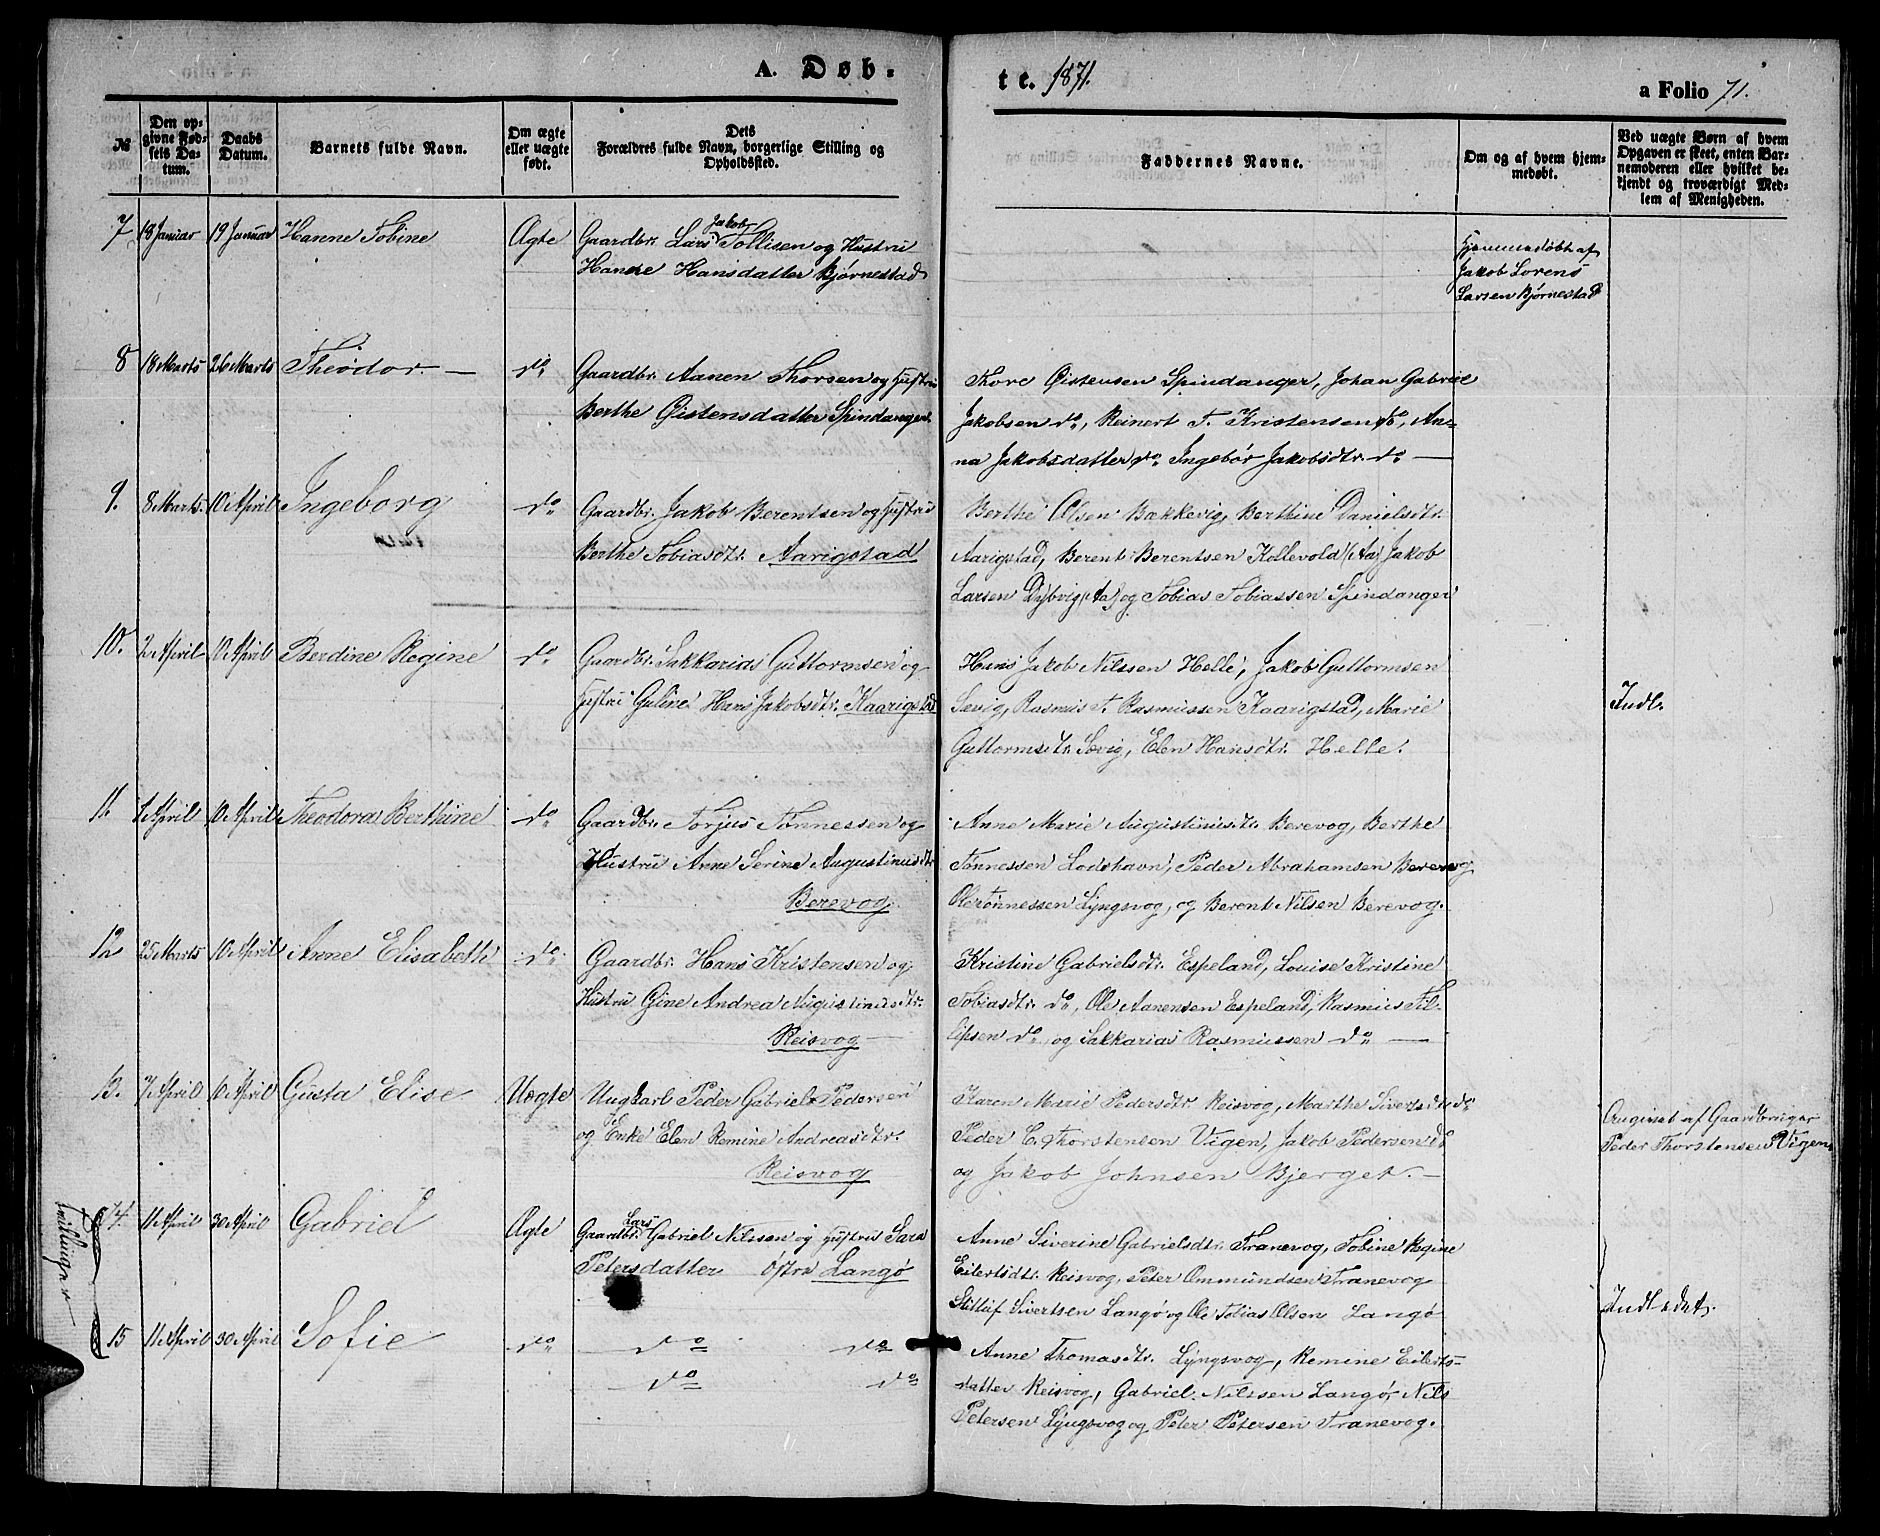 A. Døb-
te. 1871.
a Folio 71.
№
Den op-
givne Fød-
sels Da-
tum.
Daabs
Datum.
Barnets fulde Navn.
Om ægte
eller uægte
født.
Dets
Forældres fulde Navn, borgerlige Stilling og
Opholdsted.
Faddernes Navne.
Om og af hvem hjem-
medøbt.
Ved uægte Børn af hvem
Opgaven er skeet, enten Bar-
nemoderen eller hvilket be-
kjendt og troværdigt Med-
lem af Menigheden.
7 18 Januar 19 Januar Hanne Tobine Ægte Gaardbr. Lars Jakob Tollisen og Hustru
Hanne Hansdatter Bjørnestad
Hjemmedøbt af
Jakob Lorens
Larsen Bjørnestad
8 18 Marts 26 Marts Theodor — do Gaardbr. Aanen Thorsen og Hustru
Berthe Øistensdatter Spindanger
Thore Øistensen Spindanger, Johan Gabriel
Jakobsen do, Reinert T. Kristensen do, An-
na Jakobsdatter do Ingebor Jakobsdtr. do —
9. 8 Marts 10 April Ingeborg do Gaardbr. Jakob Berentsen og Hustru
Berthe Tobiasdtr. Aarigstad
Berthe Olsen Bækkevig, Berthine Danielsdtr.
Aarigstad, Berent Berentsen Kollevold (Aa) Jakob
Larsen Dybvig (Aa) og Tobias Tobiassen Spindanger
10. 2 April 10 April Berdine Regine do Gaardbr. Sakkarias Guttormsen og
Hustru Guline Hans Jakobsdtr. Kaarigstad
Hans Jakob Nilssen Helle, Jakob Guttormsen
Sævig, Rasmus T. Rasmussen Kaarigstad, Marie
Guttormsdtr. Sævig, Elen Hansdtr. Helle.
Indl.
11. 1 April 10 April Theodora Berthine do Gaardbr. Torjus Tønnessen og
Hustru Anne Serine Augustinusdtr.
Berevog
Anne Marie Augustinusdtr. Berevog, Berthe
Tønnessen Lodshavn, Peder Abrahamsen Berevog
Ole Tønnessen Lyngsvog, og Berent Nilsen Berevog.
12 25 Marts 10 April Anne Elisabeth do Gaardbr. Hans Kristensen og
Hustru Gine Andrea Augustinusdtr.
Reisvog
Kristine Gabrielsdtr. Espeland, Louise Kristine
Tobiasdtr. do, Ole Aanensen Espeland, Rasmus Fil-
lipsen do og Sakkarias Rasmussen do —
13. 7 April 10 April Gusta Elise Uægte Ungkarl Peder Gabriel Pedersen
og Enke Elen Remine Andreasdtr.
Reisvog
Karen Marie Pedersdtr. Reisvog, Marthe Sivertsdtr. do
Peder C. Thorstensen Vigen, Jakob Pedersen do
og Jakob Johnsen Bjerget. —
Angivet af Gaardbruger
Peder Thorstensen Vigen
14. 11 April 30 April Gabriel Ægte Gaardbr. Lars Gabriel Nilssen og Hustru Sara
Petersdatter Østre Langø
Anne Siverine Gabrielsdtr. Tranevog, Tobine Regine
Eilertsdtr. Reisvog, Peter Ommundsen Tranevog
Sivertsen Langø og Ole Tobias Olsen Langø
Tvillinger
Indledet.
15 11 April 30 April Sofie do do do
do do
Anne Thomasdtr. Lyngsvog, Remine Eilerts-
datter Reisvog, Gabriel Nilssen Langø, Nils
Petersen Lyngsvog og Peter Petersen Tranevog.